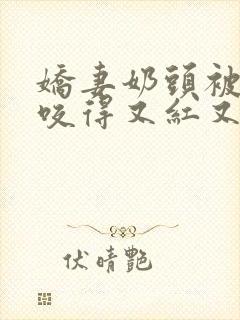 嬌妻奶頭被
咬得又紅又
伏晴艷